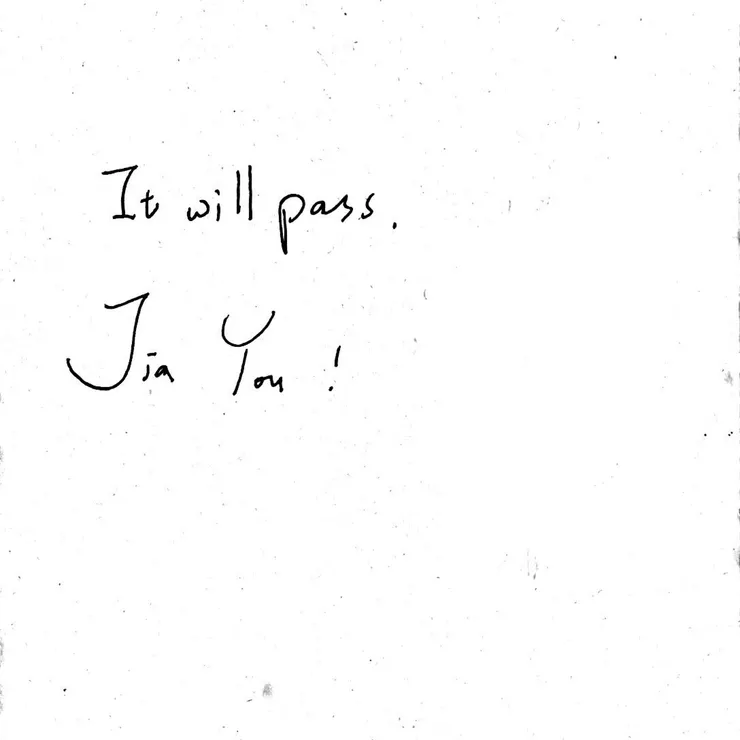 It will pass.
Jia You!